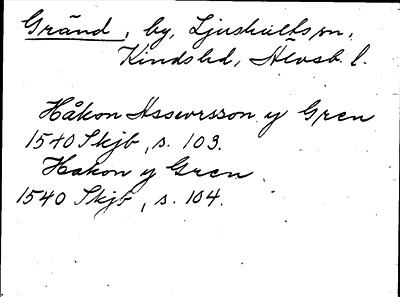 Gränd, by, Ljushults sn,
Kinds hd, Älvsb. l.
Håkon Assersson y Gren
1540 Skjb, s. 103.
Hakon y Gren
1540 Skjb, s. 104.